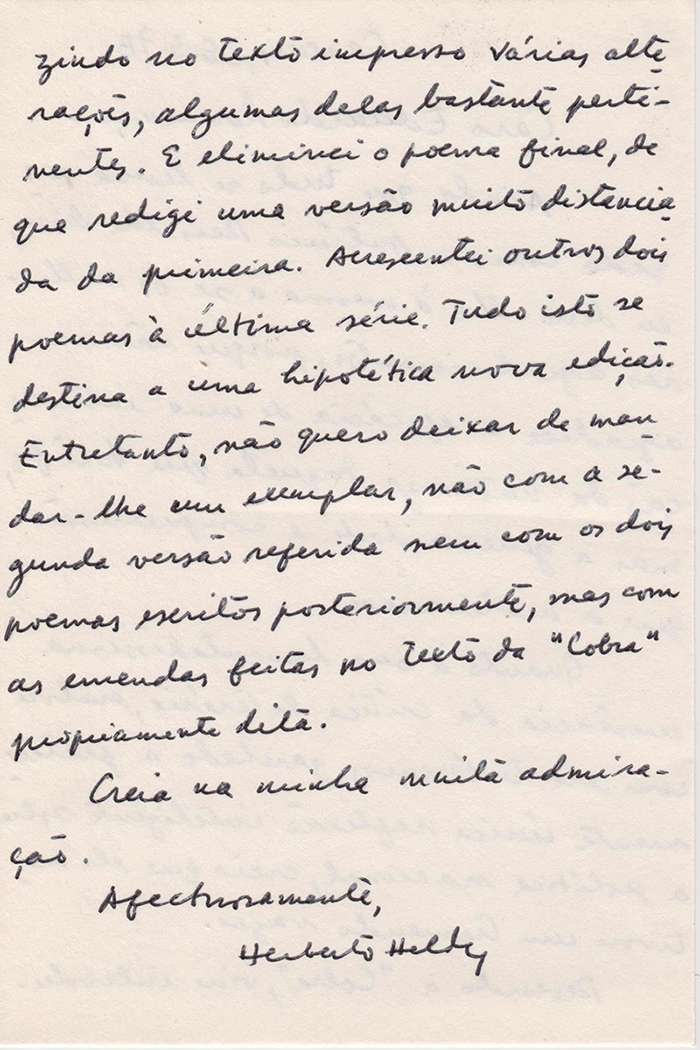 zindo no texto impresso várias alte-
rações, algumas delas bastante perti-
nentes. E eliminei o poema final, de
que redigi uma versão muito distancia-
da da primeira. Acrescentei outros dois
poemas à última série. Tudo isto se
destina a uma hipotética nova edição.
Entretanto, não quero deixar de man
dar-lhe um exemplar, não com a se-
gunda versão referida nem com os dois
poemas escritos posteriormente, mas com
as emendas feitas no texto da "Cobra"
propriamente dita.
Creia na minha muita admira-
ção.
Afectuosamente,
Herberto Helder